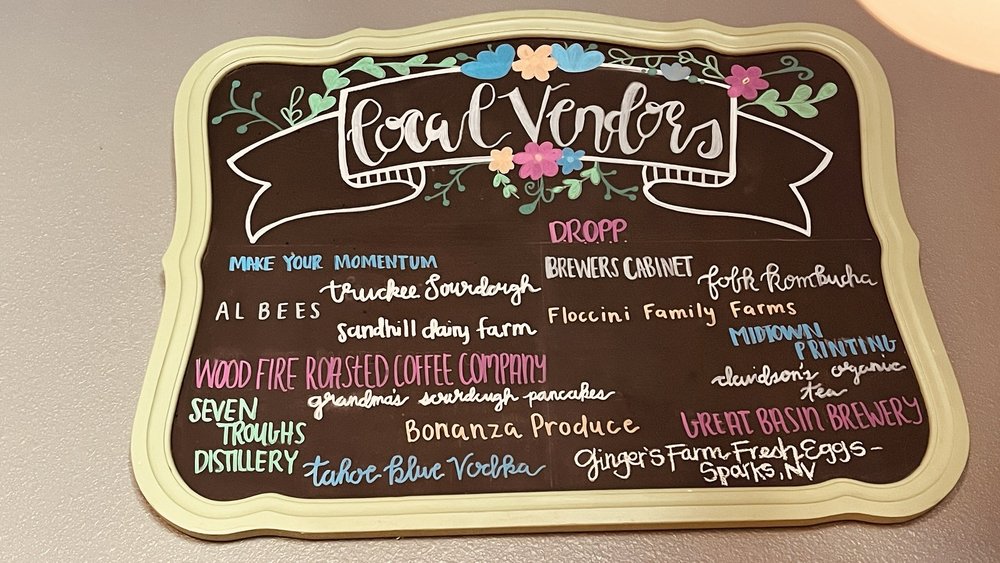 Local Vendors
D.R.O.P.P.
MAKE YOUR MOMENTUM
BREWERS CABINET
truckee Sourdough
folk kombucha
AL BEES
Floccini Family Farms
sandhill dairy farm
MIDTOWN
PRINTING
WOOD FIRE ROASTED COFFEE COMPANY
davidson's organic
tea
grandma's sourdough pancakes
SEVEN
TROUGHS
DISTILLERY
Bonanza Produce
GREAT BASIN BREWERY
tahoe blue Vodka
Ginger's Farm Fresh Eggs -
Sparks, NV